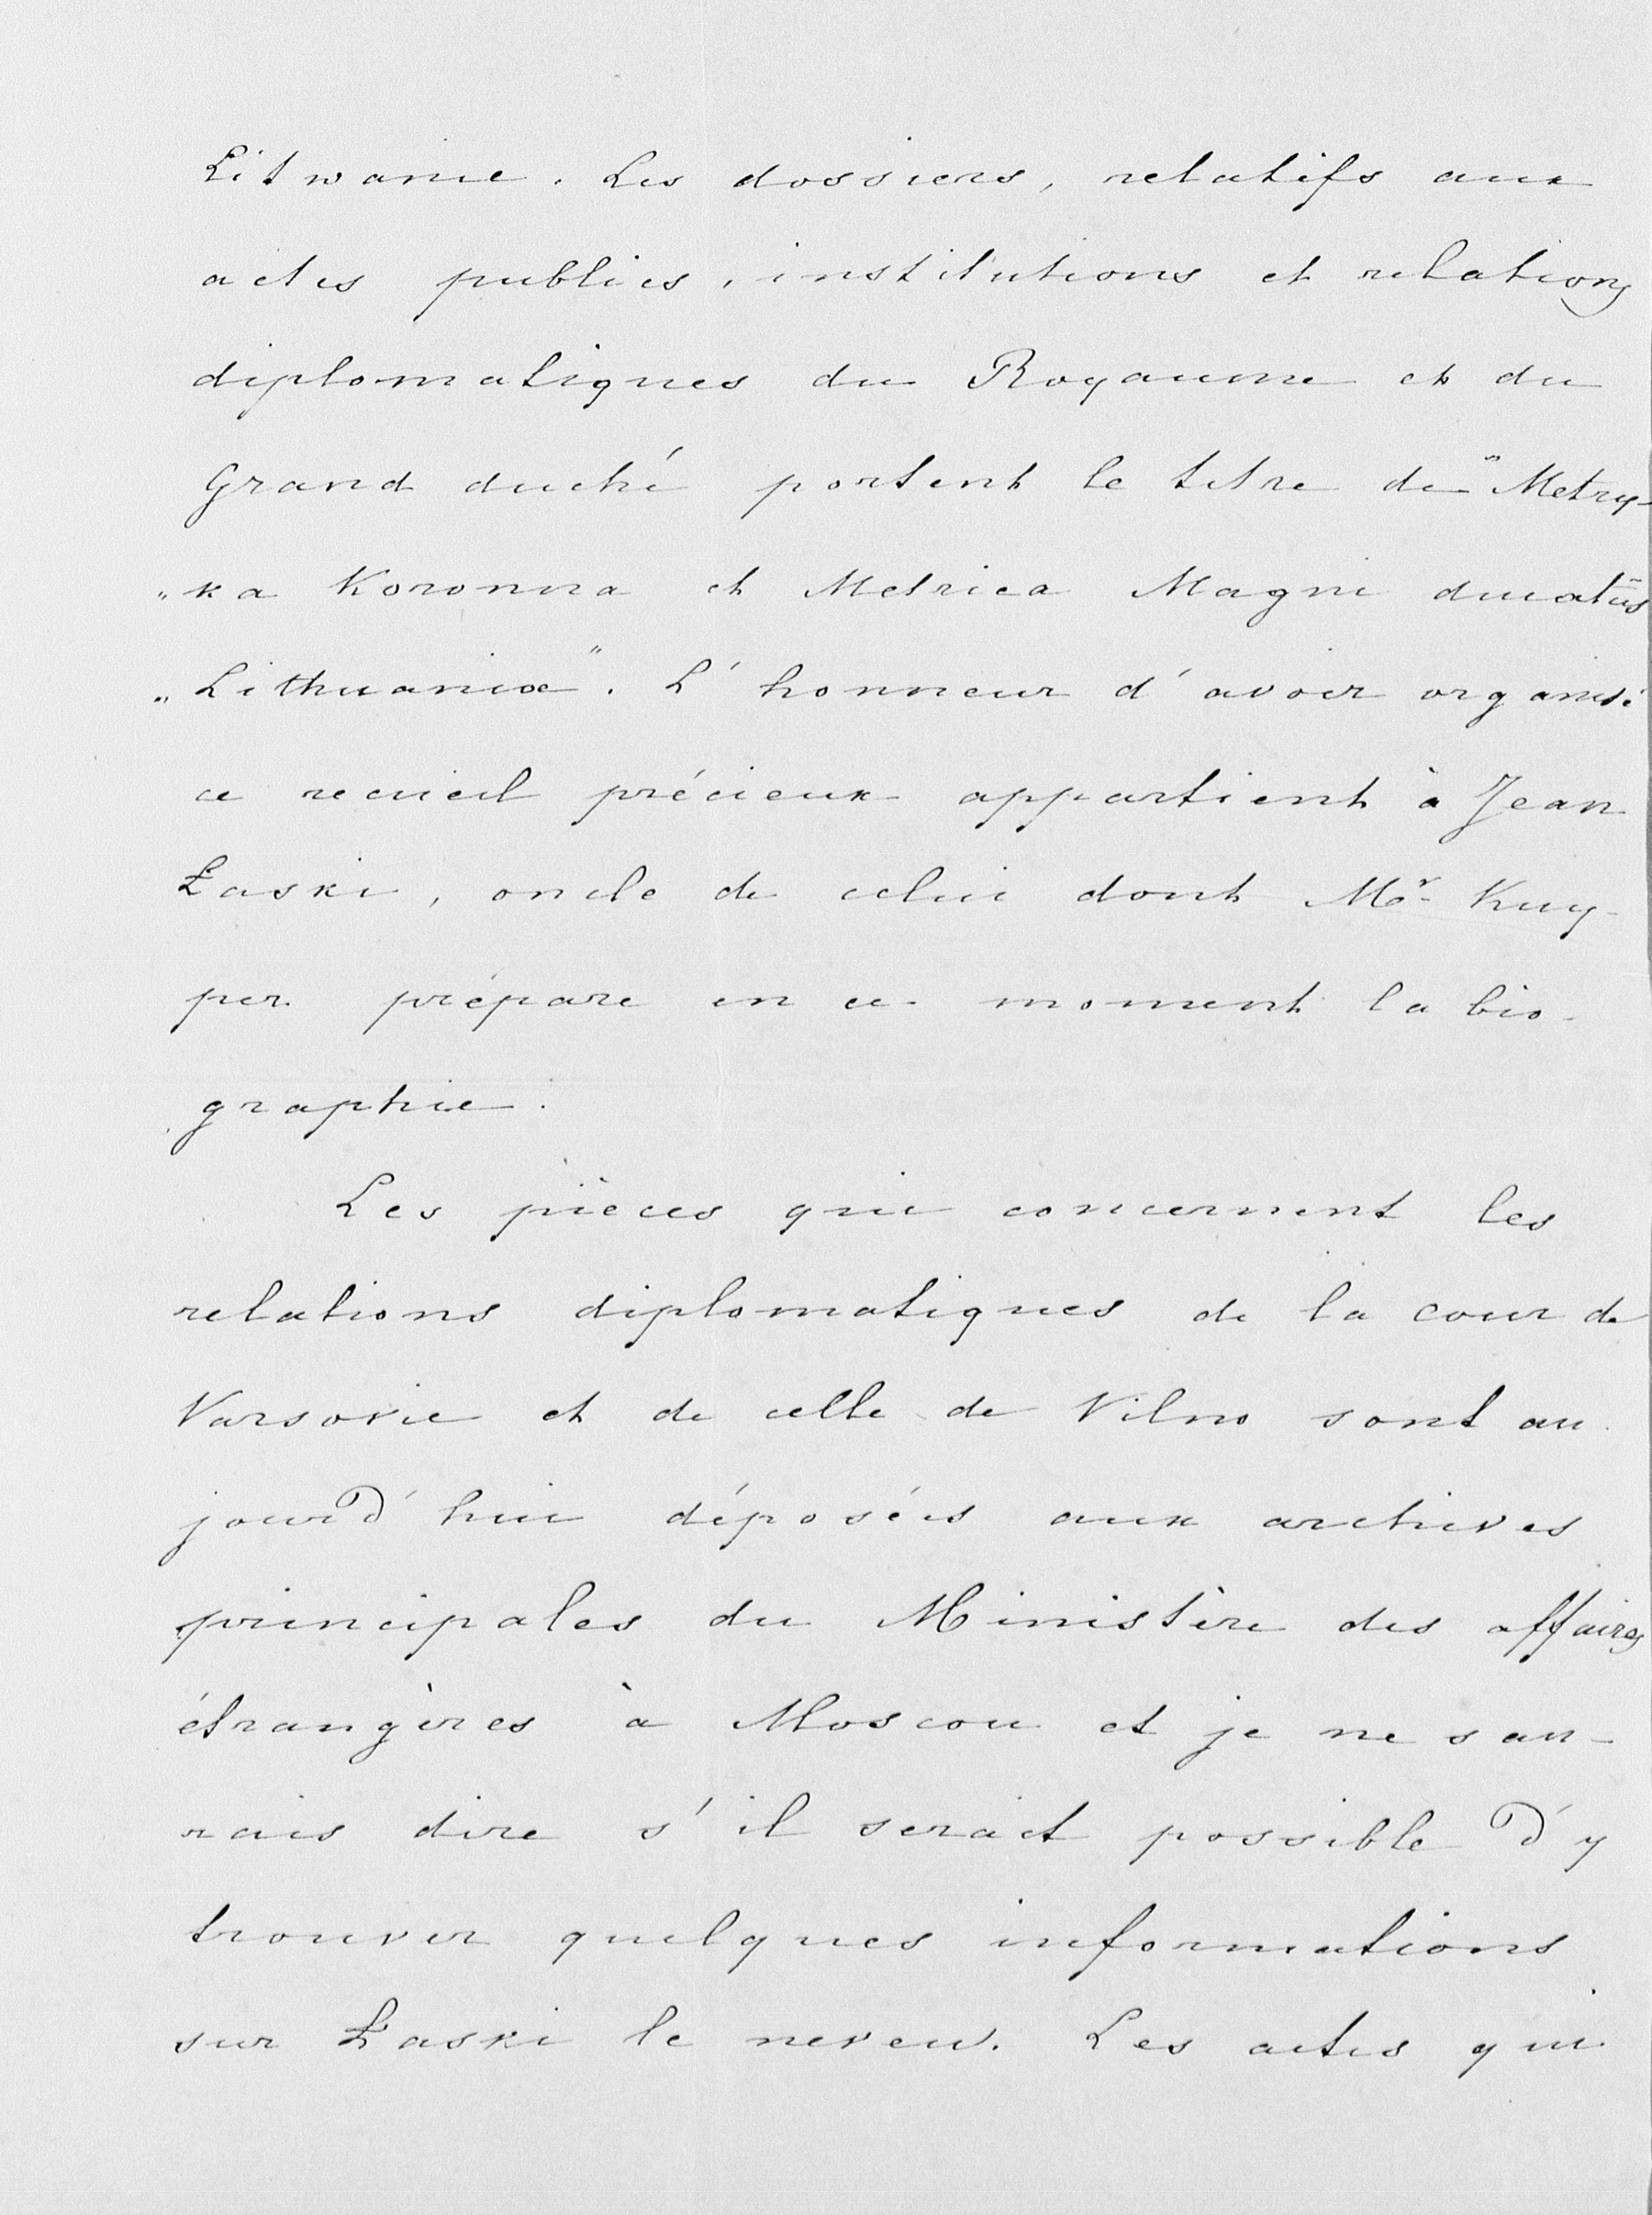 Litwanie. Les dossiers, relatifs aux
actes publics, institutions et relations
diplomatiques du Royaume et du
Grand duché portent le titre de "Metry-
"ka Koronna et Metrica Magni ducatûs
"Lithuaniæ". L'honneur d'avoir organisé
ce recueil précieux appartient à Jean
Łaski, oncle de celui dont Mr Kuy-
per prépare en ce moment la bio-
graphie.
Les pièces qui concernent les
relations diplomatiques de la cour de
Varsovie et de celle de Vilno sont au
jourd'hui déposées aux archives
principales du Ministère des affaires
étrangères à Moscou et je ne sau-
rais dire s'il serait possible d'y
trouver quelques informations
sur Łaski le neveu. Les actes qui